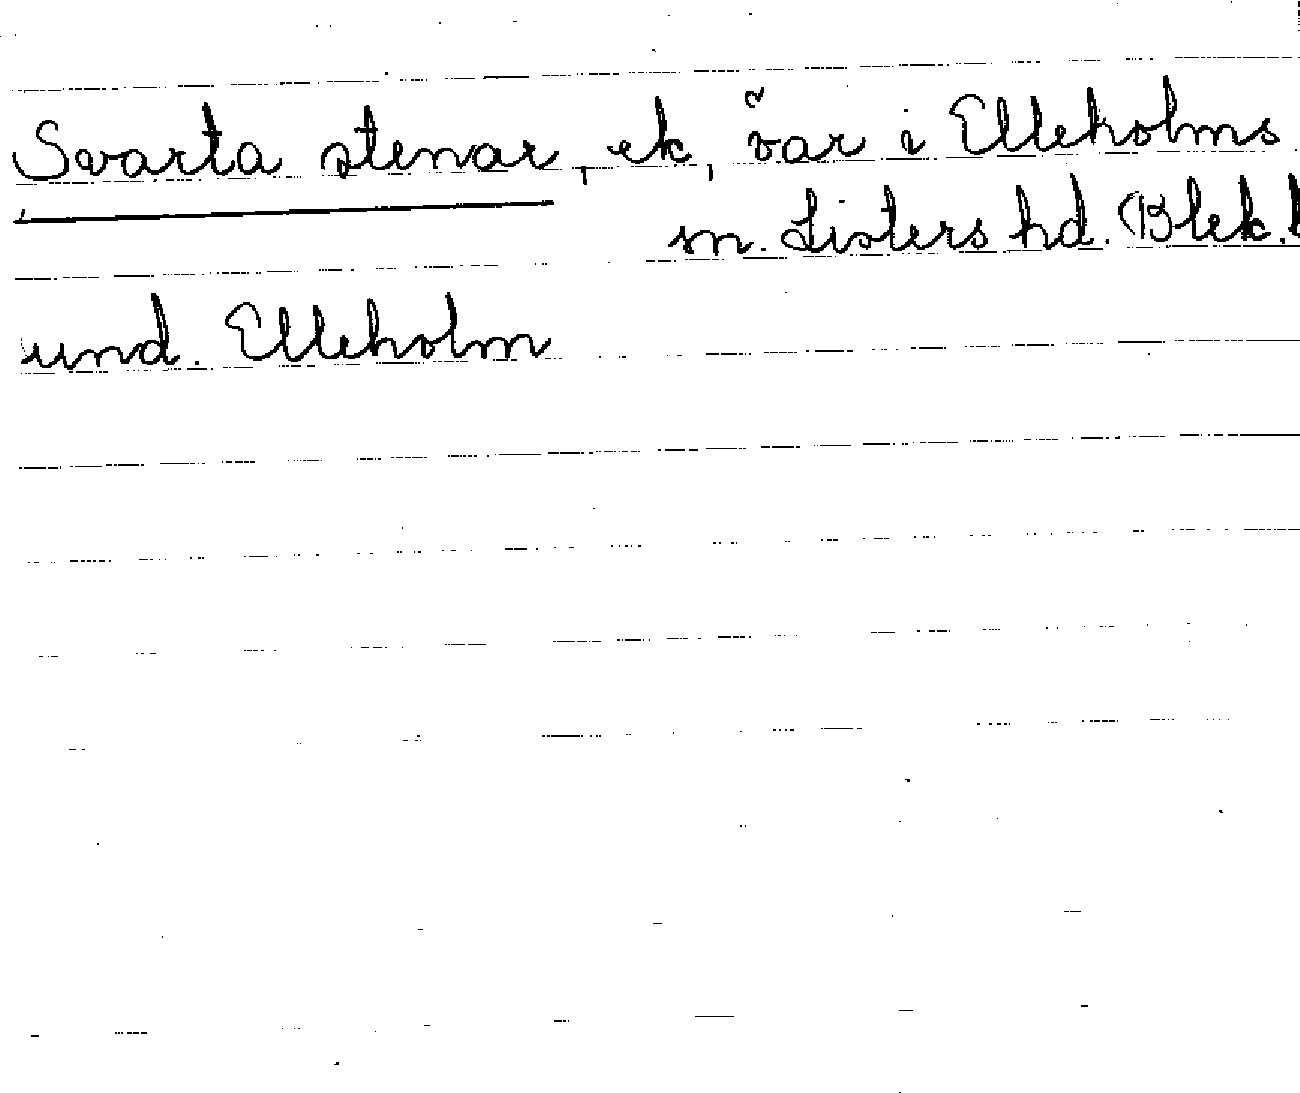 Svarta stenar, ek, var i Elleholms
sn. Listers hd. (Blek.l
und. Elleholm